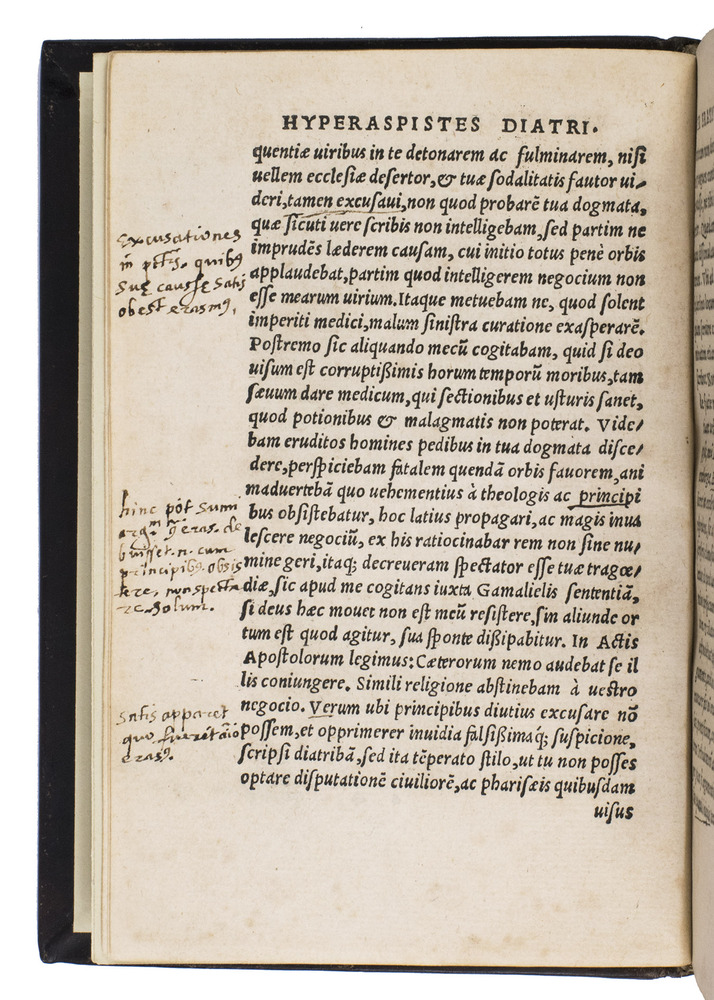 HYPERASPISTES DIATRI.
quentiæ uiribus in te detonarem ac fulminarem, nisi
uellem ecclesiæ desertor, & tuæ sodalitatis fautor ui⸗
deri, tamen excusaui, non quod probarē tua dogmata,
quæ sicuti uere scribis non intelligebam, sed partim ne
imprudēs læderem causam, cui initio totus penè orbis
applaudebat, partim quod intelligerem negocium non
esse mearum uirium. Itaque metuebam ne, quod solent
imperiti medici, malum sinistra curatione exasperarē.
Postremo sic aliquando mecū cogitabam, quid si deo
uisum est corruptißimis horum temporū moribus, tam
sæuum dare medicum, qui sectionibus et usturis sanet,
quod potionibus & malagmatis non poterat. Vide⸗
bam eruditos homines pedibus in tua dogmata disce⸗
dere, perspiciebam fatalem quendā orbis fauorem, ani
maduertebā quo uehementius à theologis ac principi
bus obsistebatur, hoc latius propagari, ac magis inua
lescere negociū, ex his ratiocinabar rem non sine nu⸗
mine geri, itaq; decreueram spectator esse tuæ tragœ⸗
diæ, sic apud me cogitans iuxta Gamalielis sententiā,
si deus hæc mouet non est meū resistere, sin aliunde or
tum est quod agitur, sua sponte dißipabitur. In Actis
Apostolorum legimus: Cæterorum nemo audebat se il
lis coniungere. Simili religione abstinebam à uestro
negocio. Verum ubi principibus diutius excusare nō
possem, et opprimerer inuidia falsißimaq; suspicione,
scripsi diatribā, sed ita tēperato stilo, ut tu non posses
optare disputationē ciuiliorē, ac pharisæis quibusdam
uisus
Excusationes
quibꝰ
Suę caussę Satis
obest erasmꝰ,
hinc pōt Sumi
eras. de
buisset .n. cum
principibꝰ obsis
tere, non specta
re Solum.
Satis apparet
quo
erasꝰ.